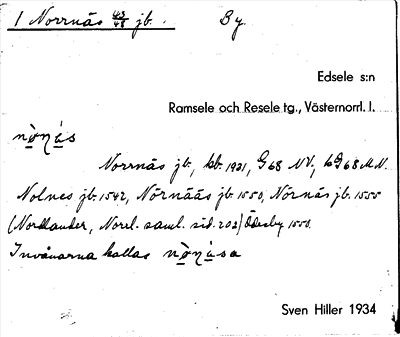 1 Norrnäs 43/48 jb. By.
Edsele s:n
Ramsele och Resele tg., Västernorrl. l.
nọṇás
Norrnäs jb., kb. 1921, G 68 NV, kG 68 M.N.
Nolnes jb. 1542, Nörnääs jb 1550, Nörnäs jb. 1555
(Nordlander, Norrl. saml. sid. 202) Ödesby 1550.
Invånarna kallas nọṇása
Sven Hiller 1934